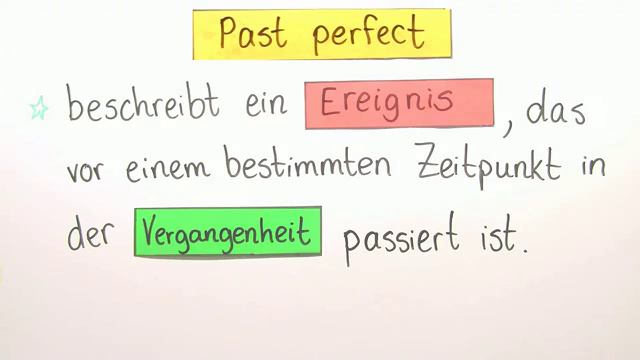 Past perfect
beschreibt ein Ereignis, das
vor einem bestimmten Zeitpunkt in
der Vergangenheit passiert ist.